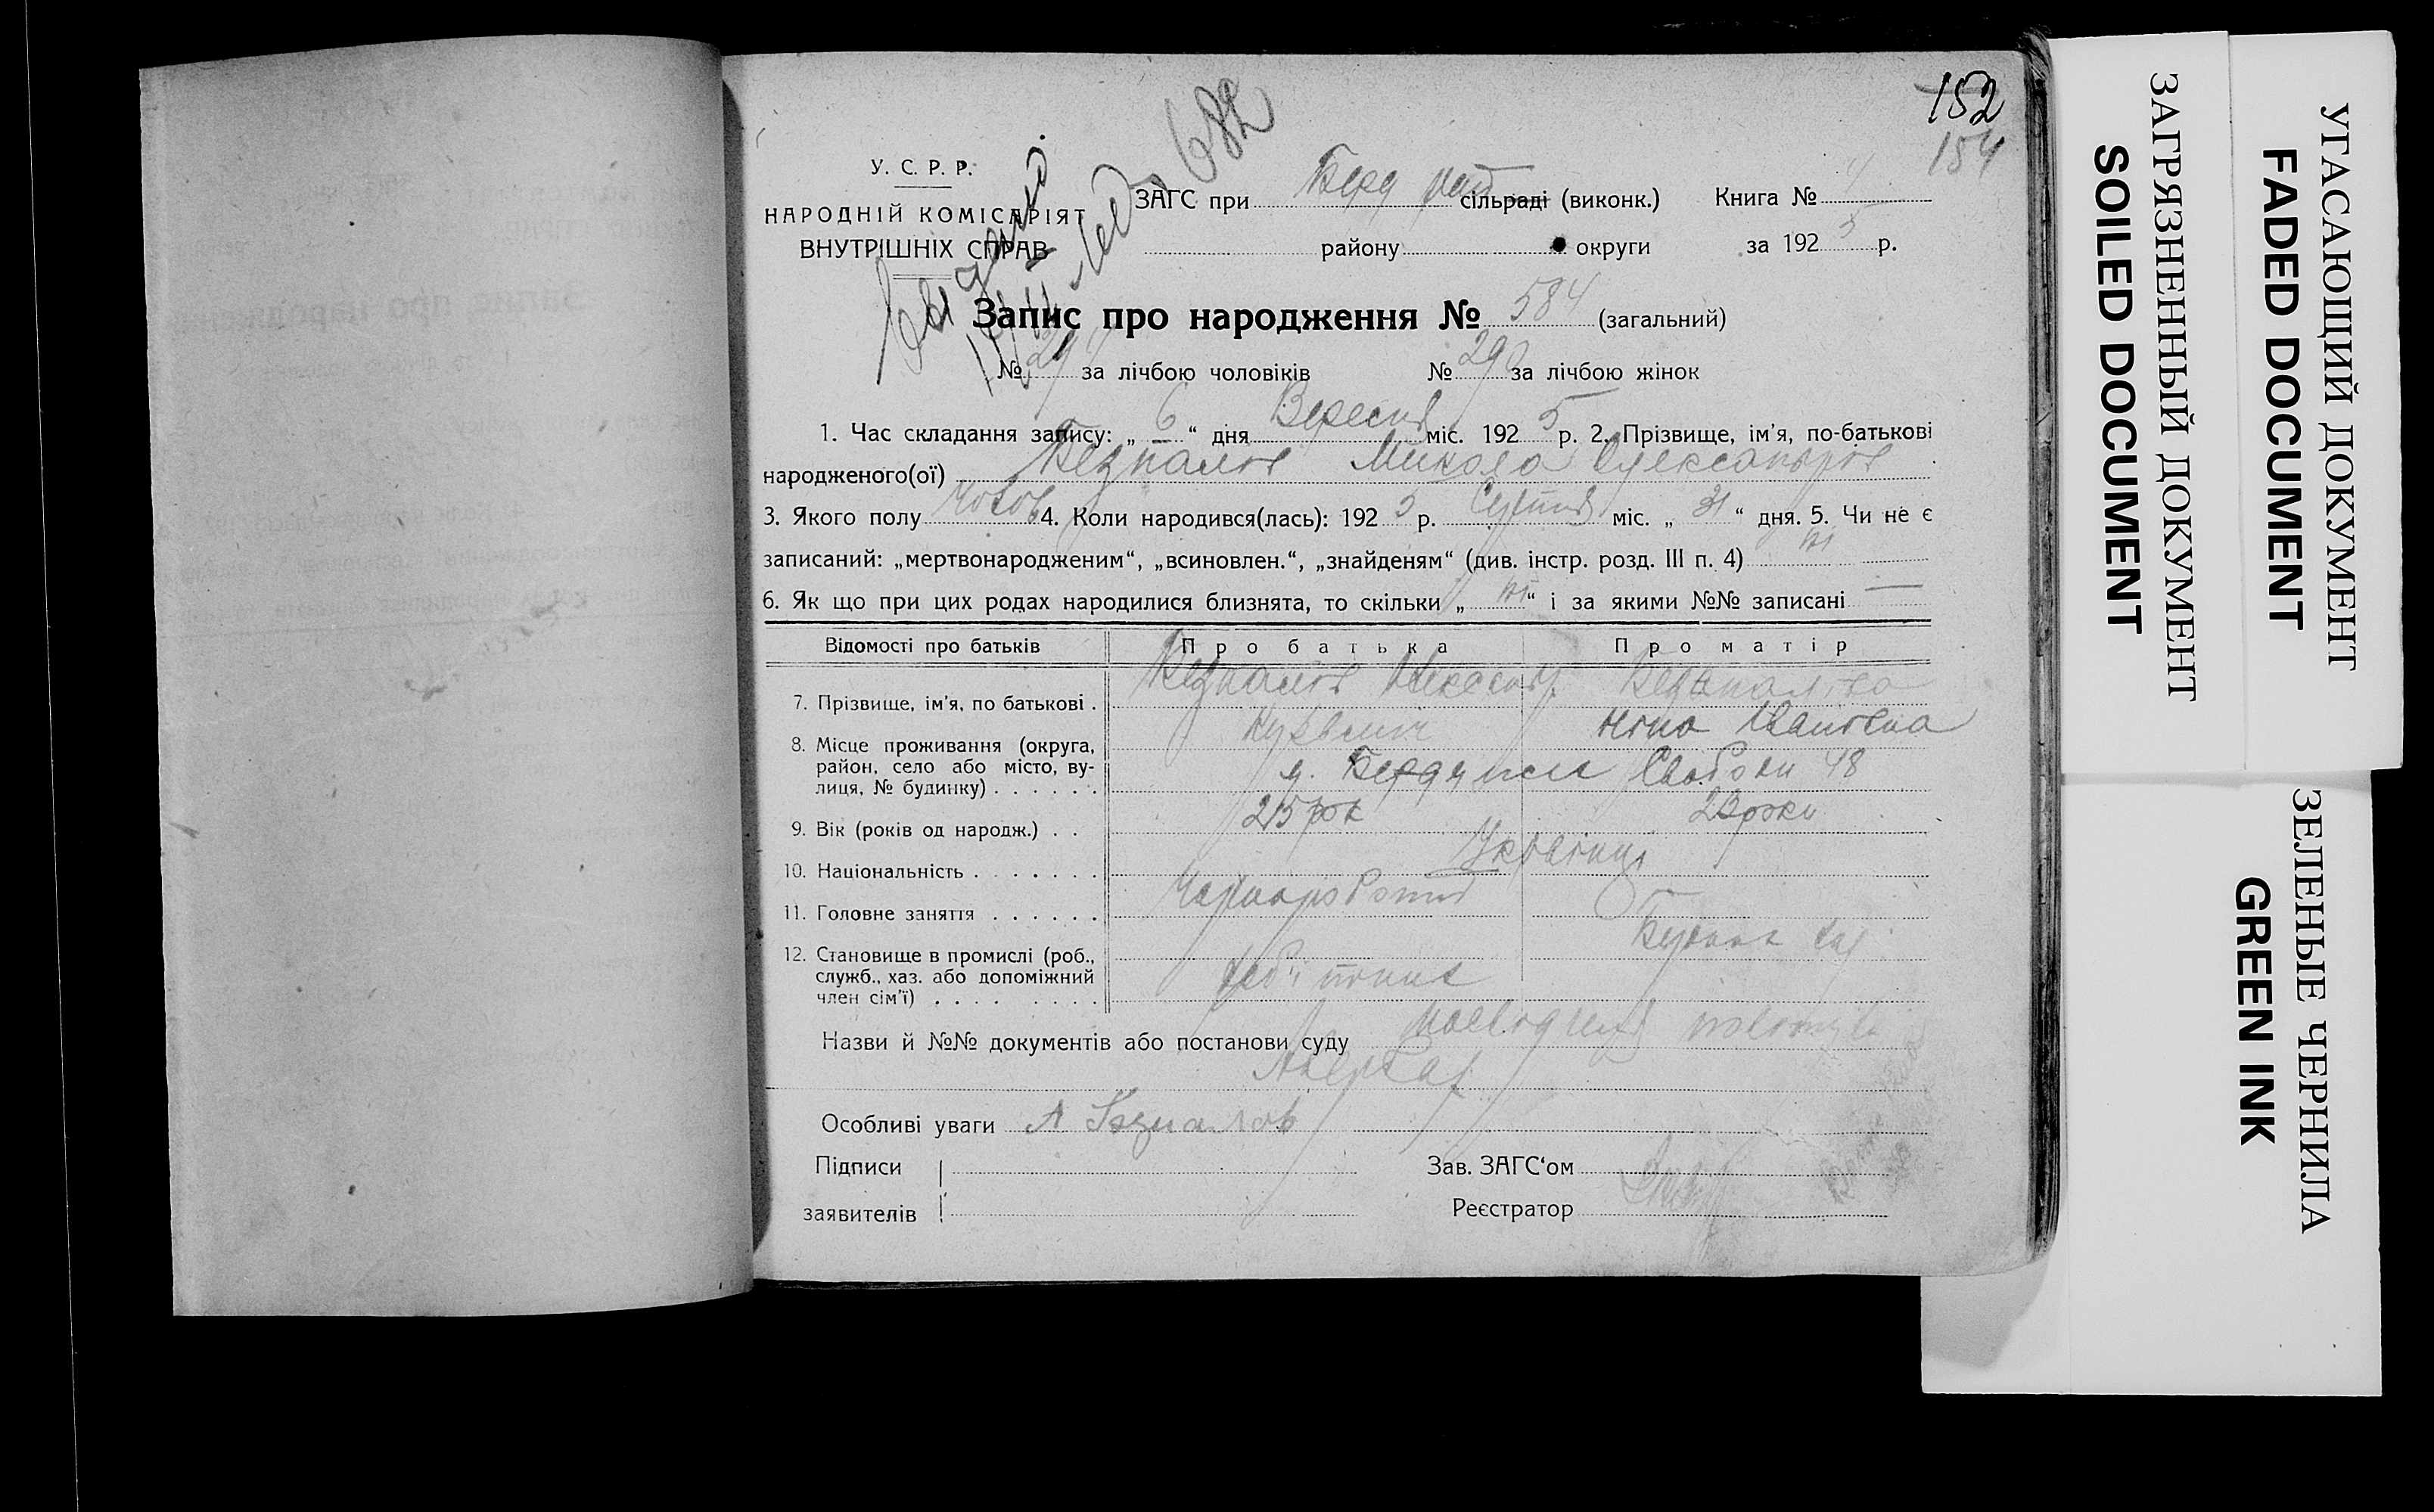 152
154
У. С. Р. Р.
НАРОДНІЙ КОМІСАРІЯТ
ВНУТРІШНІХ СПРАВ
682
ЗАГС при Берд рай сільраді (виконк.) Книга № 4
району округи за 1925 р.
Запис про народження № 584 (загальний)
№ 294 за лічбою чоловіків № 290 за лічбою жінок
1. Час складання запису: „ 6 “ дня Вересня міс. 1925 р. 2. Прізвище, ім’я, по-батькові
народженого(ої) Безпалов Микола Олександров
3. Якого полу Чолов 4. Коли народився(лась): 1925 р. Серпня міс. „ 31 “ дня. 5. Чи не є
записаний: „мертвонародженим“, „всиновлен.“, „знайденям“ (див. інстр. розд. III п. 4) ні
6. Як що при цих родах народилися близнята, то скільки „ ні “ і за якими №№ записані —
Відомості про батьків Про батька Про матір
Безпалов Олександ. Безпалова
7. Прізвище, ім’я, по батькові . Ніна Іванівна
8. Місце проживання (округа,
район, село або місто, ву-
лиця, № будинку) . . . . . . м. Бердичів Свободи 48
9. Вік (років од народж.) . . 25 рок роки
10. Національність . . . . . . . Українці
11. Головне заняття . . . . . . Чорнороботи
12. Становище в промислі (роб.,
служб., хаз. або допоміжний
член сім’ї) . . . . . . . .
Назви й №№ документів або постанови суду
Особливі уваги А Безпалов
Підписи Зав. ЗАГС‘ом
заявителів Реєстратор
УГАСАЮЩИЙ ДОКУМЕНТ
FADED DOCUMENT
ЗАГРЯЗНЕННЫЙ ДОКУМЕНТ
SOILED DOCUMENT
ЗЕЛЕНЫЕ ЧЕРНИЛА
GREEN INK